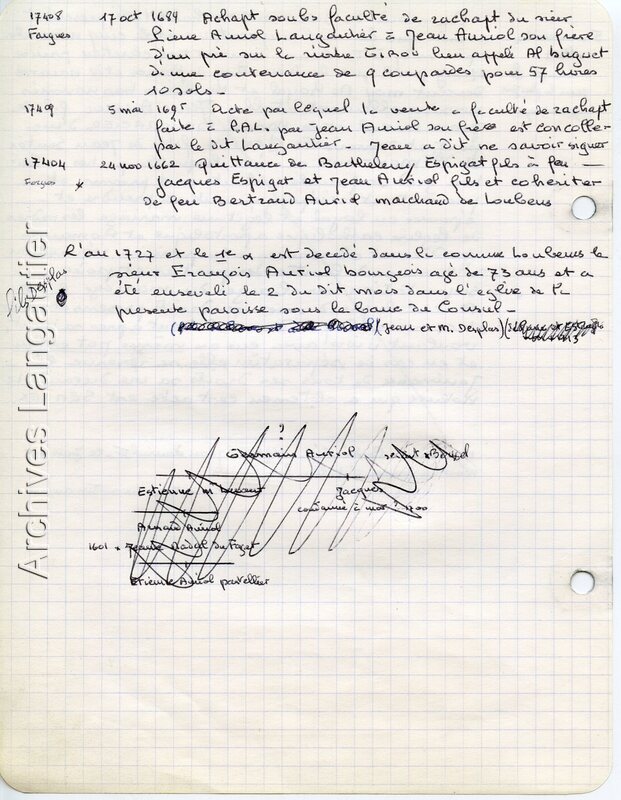 17408 17 oct 1689 Achapt soubs faculté de rachapt du sieur
Fargues Pierre Auriol Langautier à Jean Auriol son frère
d'un pré sur la rivière Girou lieu appelé Al buguet
d'une contenance de 9 coupades pour 57 livres
10 sols.
17409 5 mai 1695 Acte par lequel la vente à faculté de rachapt
faite à P.A.L. par Jean Auriol son frère est
par le dit Langautier. Jean a dit ne savoir signer
17404 24 nov 1662 Quittance de Barthelemy Espigat fils à feu
Fargues Jacques Espigat et Jean Auriol fils et cohéritier
de feu Bertrand Auriol marchand de Loubens
L'an 1727 et le 1e est decedé dans la comme Loubens le
sieur François Auriol bourgeois agé de 73 ans et a
été enseveli le 2 du dit mois dans l'eglise de la
presente paroisse sous le banc du Consul.
(Jean et M. Desplas)
fils Desplas
Archives Langautier
?
Germain Auriol
Estienne
Jacques
Arnaud Auriol
1601 x Jeanne Nadal du Faget
Etienne Auriol